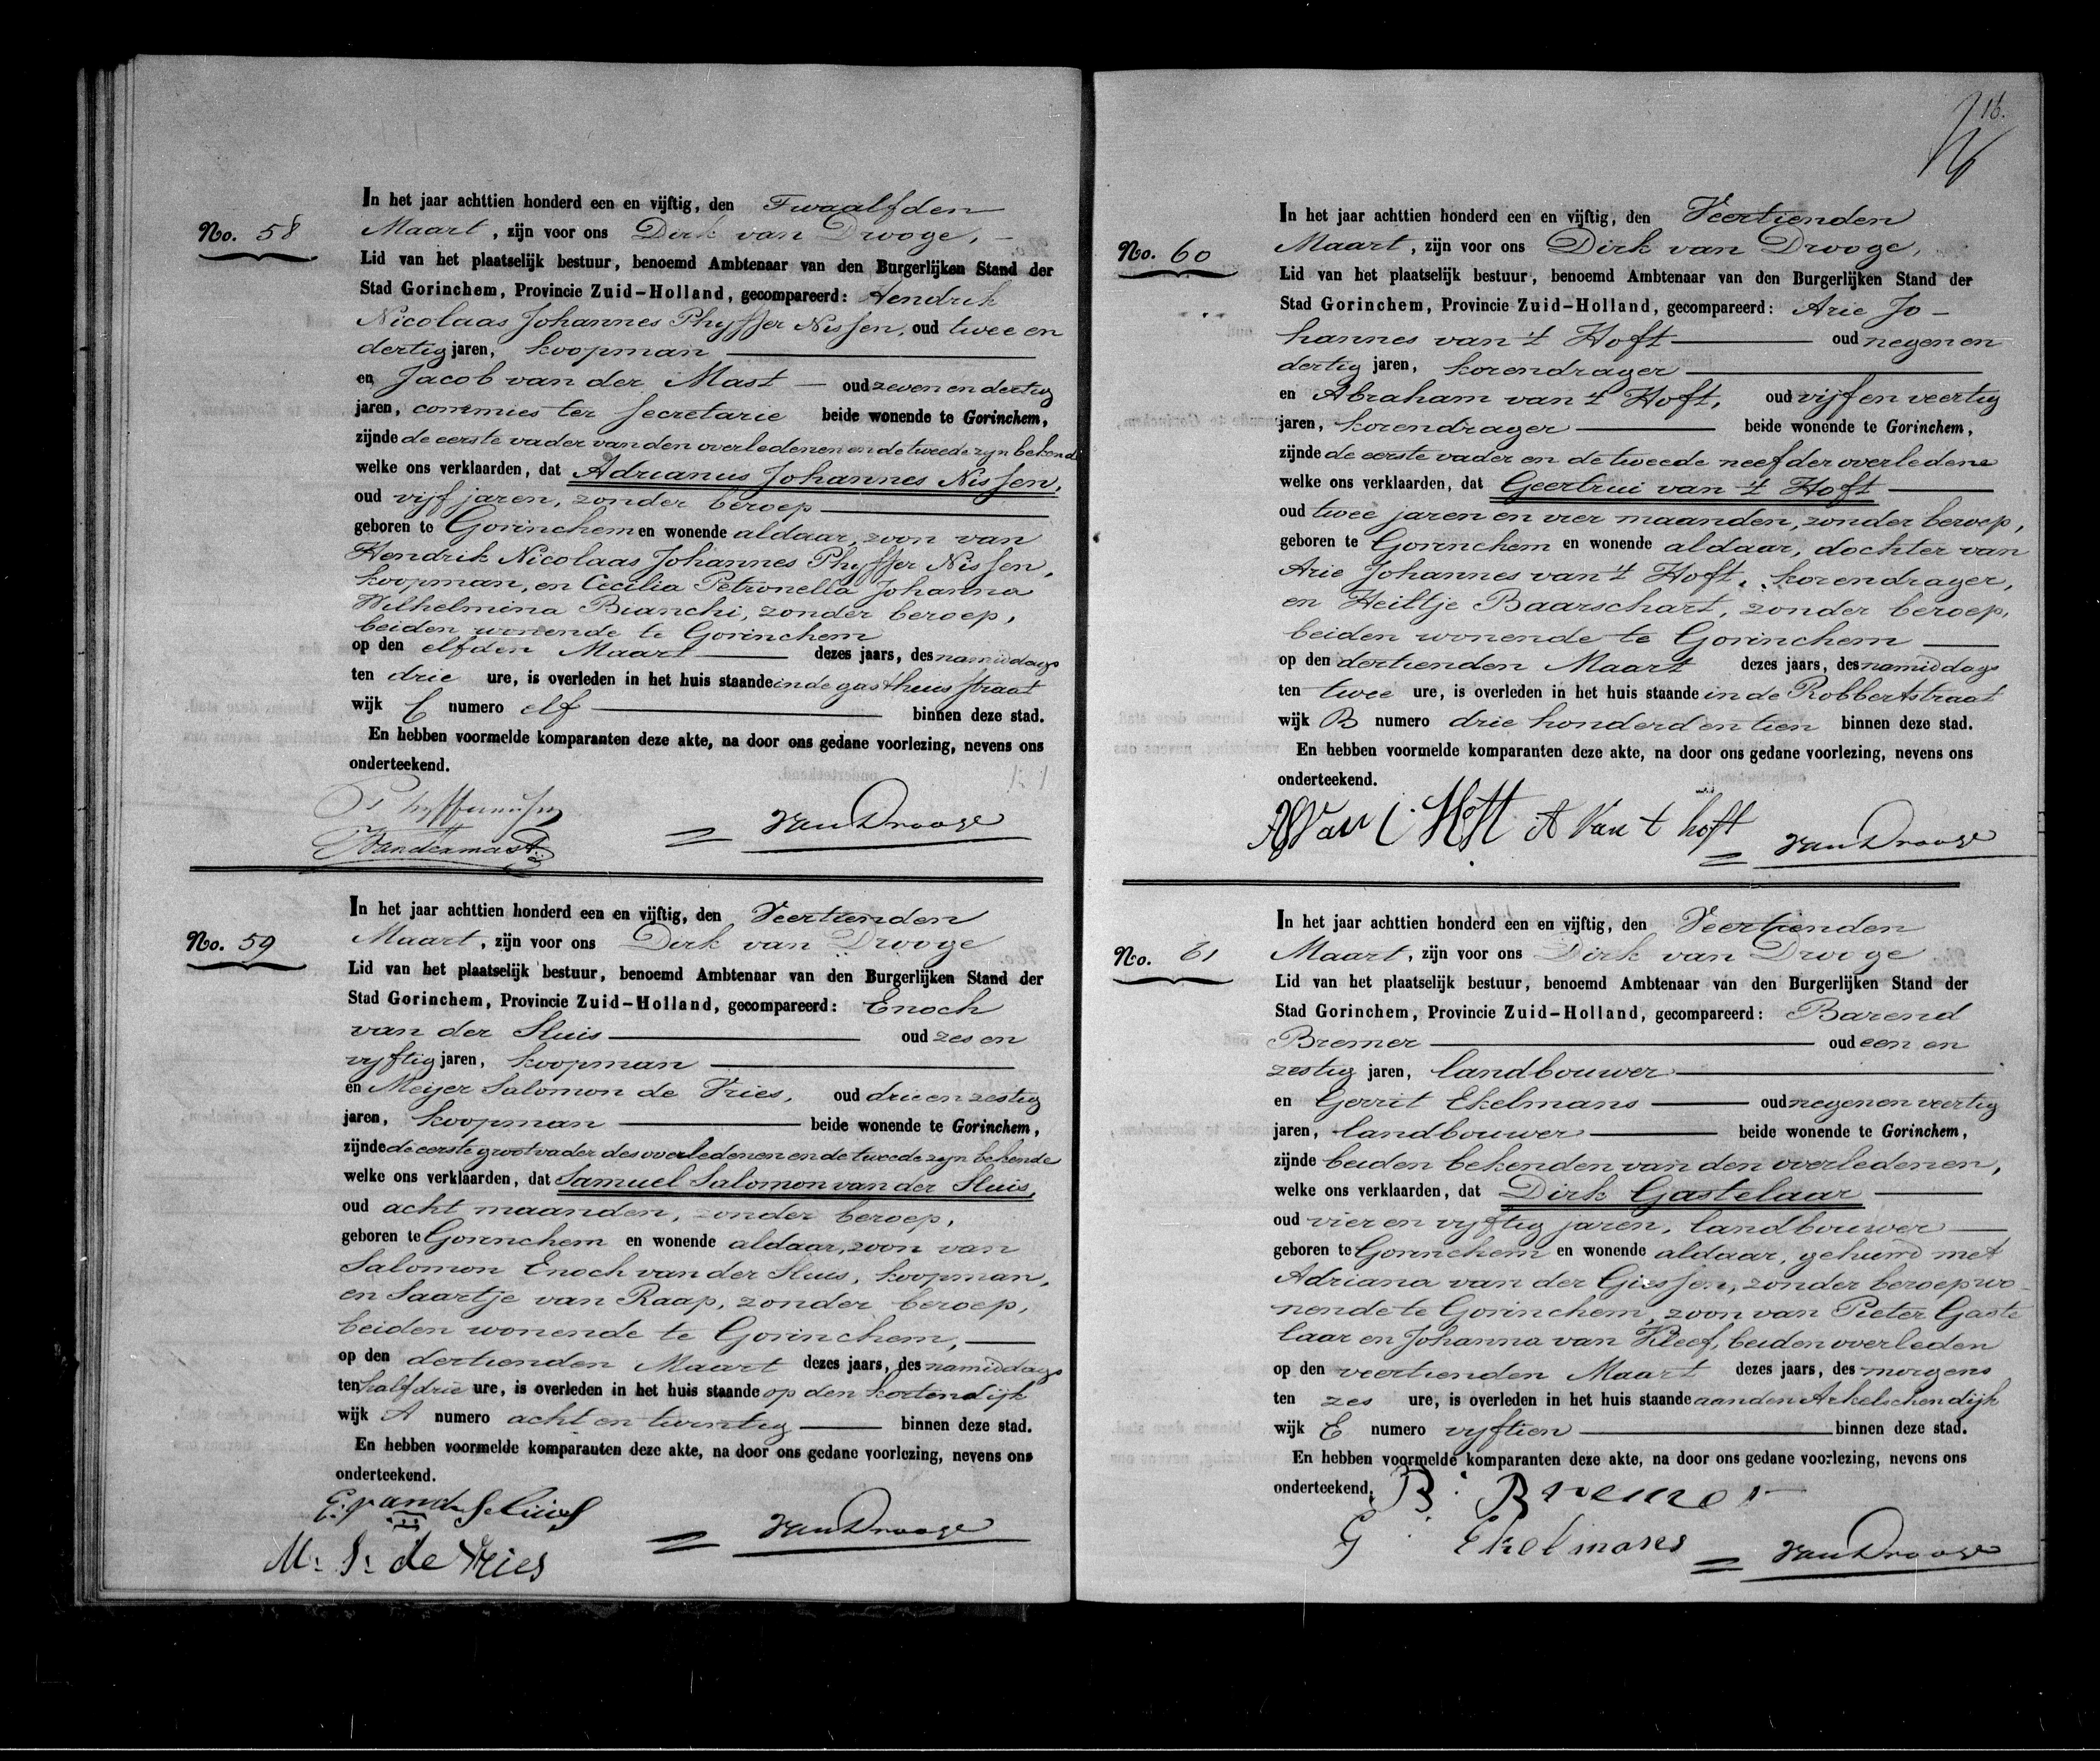 No. 58
In het jaar achttien honderd een en vijftig, den Twaalfden
Maart, zijn voor ons Dirk van Drooge,
Lid van het plaatselijk bestuur, benoemd Ambtenaar van den Burgerlijken Stand der
Stad Gorinchem, Provincie Zuid-Holland, gecompareerd: Hendrik
Nicolaas Johannes Phyffer Nissen, oud twee en
dertig jaren, koopman
en Jacob van der Mast oud zeven en dertig
jaren, commies ter secretarie beide wonende te Gorinchem,
zijnde de eerste vader van den overledenen en de tweede zyn bekend
welke ons verklaarden, dat Adrianus Johannes Nissen,
oud vijf jaren, zonder beroep
geboren te Gorinchem en wonende aldaar, zoon van
Hendrik Nicolaas Johannes Phyffer Nissen,
koopman, en Cecilia Petronella Johanna
Wilhelmina Bianchi, zonder beroep,
beiden wonende te Gorinchem
op den elfden Maart dezes jaars, des namiddags
ten drie ure, is overleden in het huis staande in de gasthuis straat
wijk C numero elf binnen deze stad.
En hebben voormelde komparanten deze akte, na door ons gedane voorlezing, nevens ons
onderteekend.
Phyffernissen
JVandermast
VanDrooge
No. 59
In het jaar achttien honderd een en vijftig, den Veertienden
Maart, zijn voor ons Dirk van Drooge
Lid van het plaatselijk bestuur, benoemd Ambtenaar van den Burgerlijken Stand der
Stad Gorinchem, Provincie Zuid-Holland, gecompareerd: Enoch
van der Sluis oud zes en
vyftig jaren, koopman
en Meijer Salomon de Vries, oud drie en zestig
jaren, koopman beide wonende te Gorinchem,
zijnde de eerste grootvader des overledenen en de tweede zyn bekende
welke ons verklaarden, dat Samuel Salomon van der Sluis,
oud acht maanden, zonder beroep,
geboren te Gorinchem en wonende aldaar, zoon van
Salomon Enoch van der Sluis, koopman,
en Saartje van Raap, zonder beroep,
beiden wonende te Gorinchem,
op den dertienden Maart dezes jaars, des namiddags
ten half drie ure, is overleden in het huis staande op den kortendijk
wijk A numero acht en twintig binnen deze stad.
En hebben voormelde komparanten deze akte, na door ons gedane voorlezing, nevens ons
onderteekend.
E. vand Sluis
M. S. de Vries
VanDrooge
16.
No. 60
In het jaar achttien honderd een en vijftig, den Veertienden
Maart, zijn voor ons Dirk van Drooge,
Lid van het plaatselijk bestuur, benoemd Ambtenaar van den Burgerlijken Stand der
Stad Gorinchem, Provincie Zuid-Holland, gecompareerd: Arie Jo-
hannes van 't Hoft oud negen en
dertig jaren, korendrager
en Abraham van 't Hoft, oud vijf en veertig
jaren, korendrager beide wonende te Gorinchem,
zijnde de eerste vader en de tweede neef der overledene
welke ons verklaarden, dat Geertrui van 't Hoft
oud twee jaren en vier maanden, zonder beroep,
geboren te Gorinchem en wonende aldaar, dochter van
Arie Johannes van 't Hoft, korendrager,
en Heiltje Baarschart, zonder beroep,
beiden wonende te Gorinchem
op den dertienden Maart dezes jaars, des namiddags
ten twee ure, is overleden in het huis staande in de Robbertstraat
wijk B numero drie honderd en tien binnen deze stad.
En hebben voormelde komparanten deze akte, na door ons gedane voorlezing, nevens ons
onderteekend.
Van t Hoft A Van t hoft
VanDrooge
No. 61
In het jaar achttien honderd een en vijftig, den Veertienden
Maart, zijn voor ons Dirk van Drooge
Lid van het plaatselijk bestuur, benoemd Ambtenaar van den Burgerlijken Stand der
Stad Gorinchem, Provincie Zuid-Holland, gecompareerd: Barend
Bremer oud een en
zestig jaren, landbouwer
en Gerrit Ekelmans oud negen en veertig
jaren, landbouwer beide wonende te Gorinchem,
zijnde beiden bekenden van den overledenen,
welke ons verklaarden, dat Dirk Gastelaar
oud vier en vyftig jaren, landbouwer
geboren te Gorinchem en wonende aldaar, gehuwd met
Adriana van der Giessen, zonder beroep wo-
nende te Gorinchem, zoon van Pieter Gaste
laar en Johanna van Kleef, beiden overleden
op den veertienden Maart dezes jaars, des morgens
ten zes ure, is overleden in het huis staande aan den Arkelschendijk
wijk E numero vyftien binnen deze stad.
En hebben voormelde komparanten deze akte, na door ons gedane voorlezing, nevens ons
onderteekend.
B. Bremer
G Ekelmans
VanDrooge